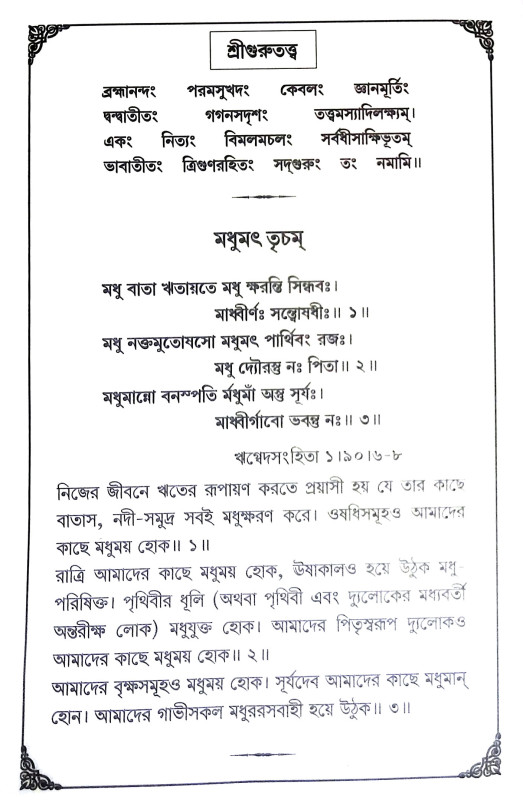 শ্রীগুরুতত্ত্ব
ব্রহ্মানন্দং পরমসুখদং কেবলং জ্ঞানমূর্তিং
দ্বন্দ্বাতীতং গগনসদৃশং তত্ত্বমস্যাদিলক্ষ্যম্।
একং নিত্যং বিমলমচলং সর্বধীসাক্ষিভূতম্
ভাবাতীতং ত্রিগুণরহিতং সদ্‌গুরুং তং নমামি॥
মধুমৎ তৃচম্
মধু বাতা ঋতায়তে মধু ক্ষরন্তি সিন্ধবঃ।
মাধ্বীর্ণঃ সন্ত্বোষধীঃ॥ ১॥
মধু নক্তমুতোষসো মধুমৎ পার্থিবং রজঃ।
মধু দ্যৌরস্তু নঃ পিতা॥ ২॥
মধুমান্নো বনস্পতি র্মধুমাঁ অস্তু সূর্যঃ।
মাধ্বীর্গাবো ভবন্তু নঃ॥ ৩॥
ঋগ্বেদসংহিতা ১।৯০।৬-৮
নিজের জীবনে ঋতের রূপায়ণ করতে প্রয়াসী হয় যে তার কাছে
বাতাস, নদী-সমুদ্র সবই মধুক্ষরণ করে। ওষধিসমূহও আমাদের
কাছে মধুময় হোক॥ ১॥
রাত্রি আমাদের কাছে মধুময় হোক, ঊষাকালও হয়ে উঠুক মধু-
পরিষিক্ত। পৃথিবীর ধূলি (অথবা পৃথিবী এবং দ্যুলোকের মধ্যবর্তী
অন্তরীক্ষ লোক) মধুযুক্ত হোক। আমাদের পিতৃস্বরূপ দ্যুলোকও
আমাদের কাছে মধুময় হোক॥ ২॥
আমাদের বৃক্ষসমূহও মধুময় হোক। সূর্যদেব আমাদের কাছে মধুমান্
হোন। আমাদের গাভীসকল মধুররসবাহী হয়ে উঠুক॥ ৩॥